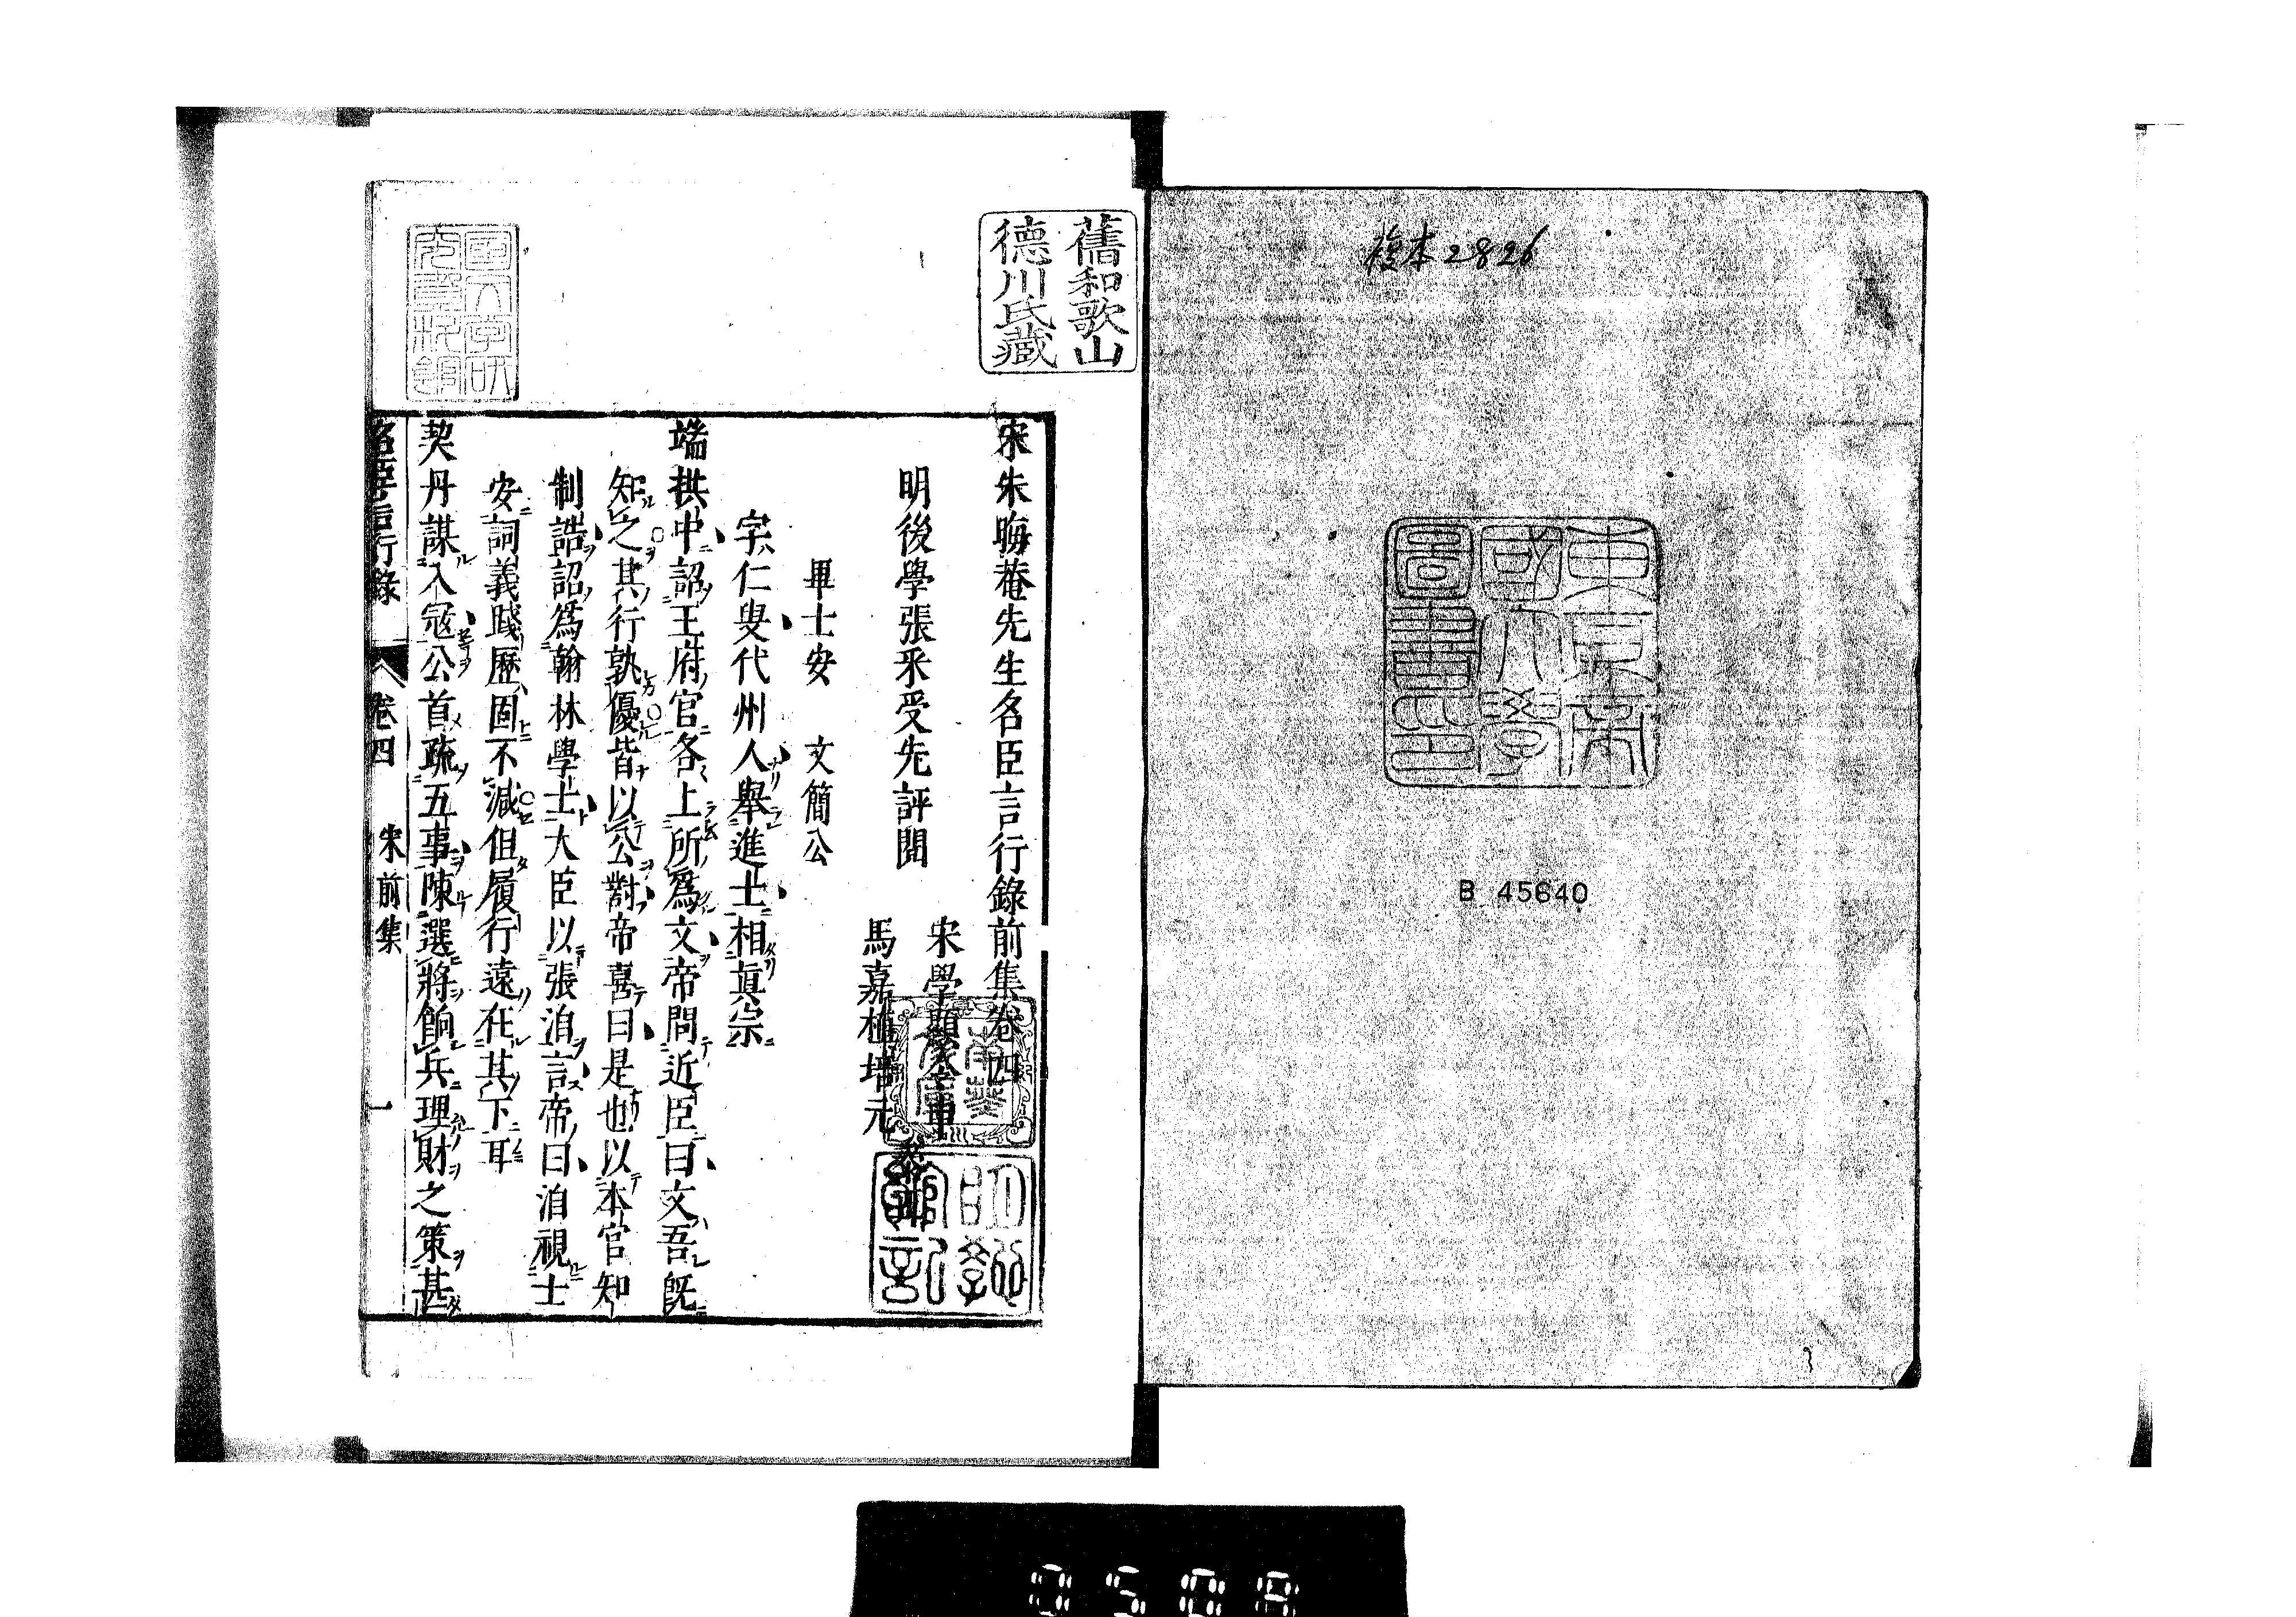 複本2826
東京帝
國大學
圖書印
B 45640
舊和歌山
德川氏藏
宋朱晦菴先生名臣言行錄前集卷四
明後學張采受先評閱
宋學顯
馬嘉植培元
參正
畢士安 文簡公
字仁叟代州人舉進士相眞宗
端拱中詔王府官各上所爲文帝問近臣曰文吾既
知之其行孰優皆以公對帝喜曰是也以本官知
制誥詔爲翰林學士大臣以張洎言帝曰洎視士
安詞義踐歷固不減但履行遠在其下耳
契丹謀入寇公首疏五事陳選將餉兵理財之策甚
名臣言行錄 卷四 宋前集 一